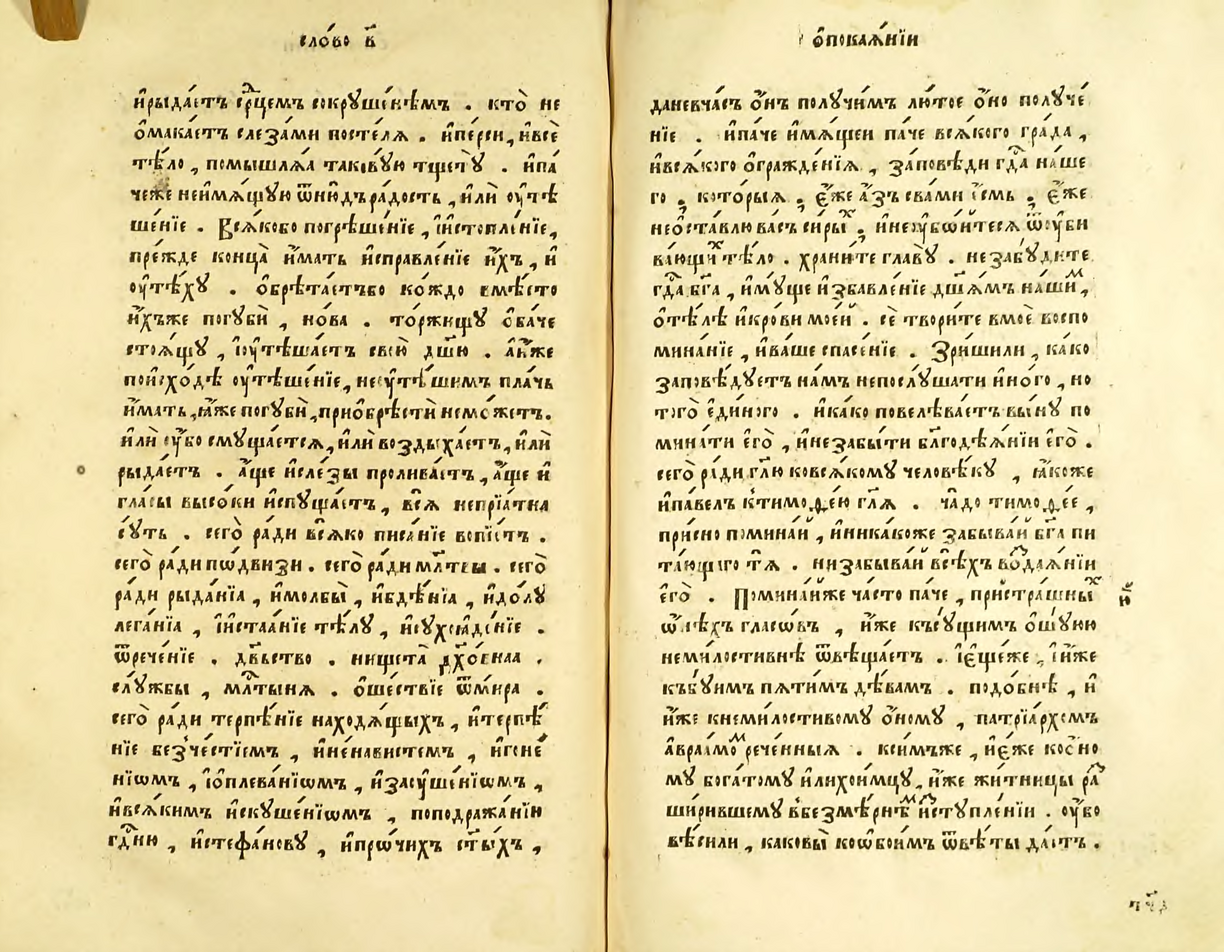 сло́во в҃
и҆рыда́етъ срⷣцемъ сокруше́нѣмъ . кто̀ не
ѡ҆мака́етъ слеза́ми посте́лѧ . и҆пе́рси , и҆всѐ
тѣ́ло , помышлѧ́ѧ такову́ю тщету̀ . и҆па́
чеже неимꙋ́щую ѿню́дъ ра́дость , и҆лѝ ᲂу҆тѣ
ше́нїе . Всѧ́кобо погрѣше́нїе , и҆истопле́нїе ,
пре́жде конца̀ и҆́мать и҆справле́нїе и҆́хъ , и҆
ᲂу҆тѣ́ху . ѡ҆брѣта́етъбо ко́ждо вмѣ́сто
и҆́хъже погубѝ , нова . торжищу ѻ҆ба́че
стоѧ́щу , и҆ᲂу҆тѣша́етъ свою̀ дш҃ю . а҆́нже
пои҆схо́дѣ ᲂу҆тѣше́нїе , неᲂу҆тѣ́шимъ пла́чь
и҆́мать , ꙗ҆́же погубѝ , приѡбрѣстѝ немо́жетъ .
и҆лѝ ᲂу҆́бо смуща́етсѧ , и҆лѝ воздыха́етъ , и҆лѝ
рыда́етъ . а҆́ще и҆сле́зы пролива́етъ , а҆́ще и҆
гла́сы высо́ки и҆спуща́етъ , всѧ̀ непрїа́тна
су́ть . сего̀ ра́ди всѧ́ко писа́нїе вопїе́тъ .
сего̀ ра́ди по́двизи . сего̀ ра́ди мл҃твы . сего̀
ра́ди рыда́нїа , и҆молбы̀ , и҆бдѣ́нїа , и҆до́лу
лега́нїа , и҆истаа́нїе тѣ́лу , и҆сухоꙗде́нїе .
ѿрече́нїе . дв҃ьство . нищета̀ дх҃о́внаа .
слу́жбы , мл҃тынѧ . ѡ҆ше́ствїе ѿми́ра .
сего̀ ра́ди терпѣ́нїе находѧ́щыхъ , и҆терпѣ́
нїе безче́стїемъ , и҆не́навистемъ , и҆гоне́
нїѡмъ , и҆ѡплева́нїѡмъ , и҆засуше́нїѡмъ ,
и҆всѧ́кимъ и҆скуше́нїѡмъ , поподража́нїю
гдⷭ҇ню , и҆стефа́нову , и҆про́чихъ ст҃ы́хъ ,
ѡ҆покаѧ́нїи
даневча́съ ѻ҆́нъ полу́чимъ лю́тое ѻ҆́но получе́
нїе . и҆па́че и҆мѧ́щеи паче всѧ́кого гра́да ,
и҆всѧ́кого ѡ҆гражде́нїѧ , за́повѣди гдⷭ҇а на́ше
го , которыѧ , є҆́же а҆́зъ сва́ми є҆́смь , є҆́же
неѡста́влю ва́съ си́рыⷯ , и҆неᲂу҆бо́йтесѧ ѿᲂу҆би
ва́ющиⷯ тѣ́ло . храни́те главу̀ . незабу́дите
гдⷭ҇а бг҃а , и҆му́ще и҆збавле́нїе дш҃а́мъ на́шиⷨ ,
ѻ҆тѣ́лѣ и҆кро́ви мое́й . сѐ твори́те вмоѐ воспо
мина́нїе , и҆ва́ше спасе́нїе . Зри́шили , ка́ко
заповѣ́дуетъ на́мъ непослу́шати и҆но́го , но
того̀ є҆ди́ного . и҆ка́ко повелѣва́етъ вы́ну по
мина́ти є҆го̀ , и҆незабы́ти бл҃годѣѧ́нїи є҆го̀ .
сего̀ ра́ди гл҃ю ковсѧ́кому человѣ́ку , ꙗ҆́коже
и҆па́велъ ктимоѳе́ю гл҃ѧ . ча́до тимоѳе́е ,
при́сно помина́й , и҆ника́коже забыва́й бг҃а пи
та́ющаго тѧ̀ . низабыва́й всѣ́хъ воⷥдаѧ́нїи
є҆го̀ . Помина́йже ча́сто па́че , пристра́шныⷯ
ѻ҆нѣ́хъ гласѡ́въ , и҆́же ксу́щимъ ѻ҆шу́юю
неми́лостивнѣ ѿвѣща́етъ . и҆є҆ще́же , и҆и҆́же
къбу́имъ пѧти́мъ дѣ́вамъ . подо́бнѣ , и҆
и҆́же кнеми́лостивому ѻ҆́ному , патрїа́рхомъ
а҆враа́моⷨ рече́нныѧ . ксимъже , и҆є҆́же косно
му бога́тому и҆лихои́мцу , и҆́же жи́тницы раⷥ
шири́вшему вбезмѣ́рнѣⷨ и҆ступле́нїи . ᲂу҆́бо
вѣ́сили , каковы̀ кѻ҆бои́мъ ѿвѣ́ты да́стъ .